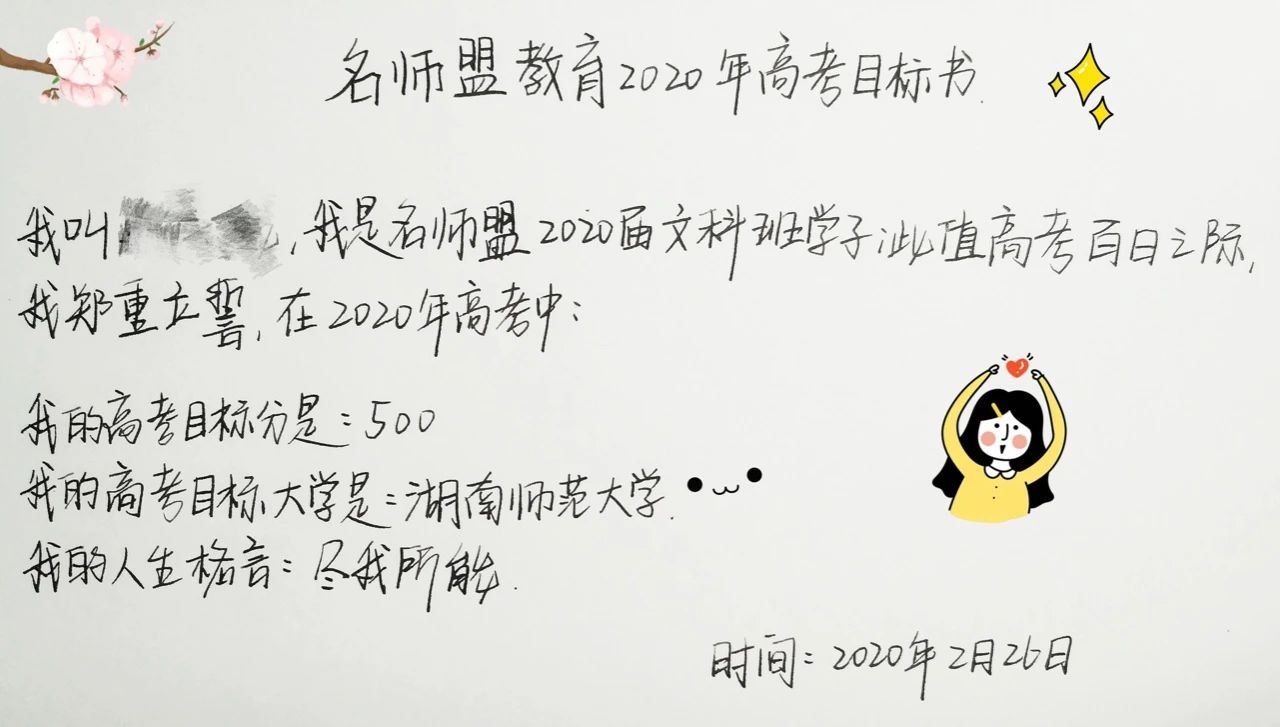 名师盟教育2020年高考目标书.
我叫 ,我是名师盟2020届文科班学子,此值高考百日之际,
我郑重立誓,在2020年高考中:
我的高考目标分是:500
我的高考目标大学是:湖南师范大学.
我的人生格言:尽我所能.
时间:2020年2月26日